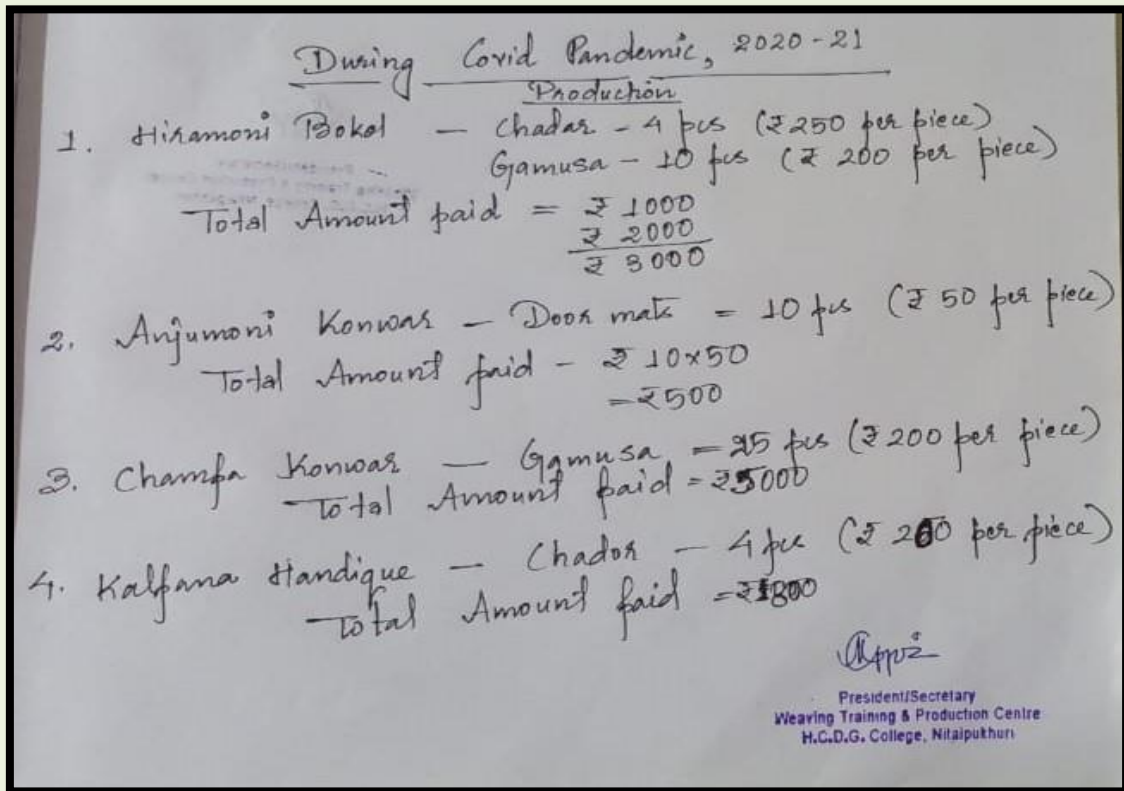 During Covid Pandemic, 2020-21
Production
1. Hiramoni Bokal — Chadar - 4 pcs (₹250 per piece)
Gamusa - 10 pcs (₹ 200 per piece)
Total Amount paid = ₹ 1000
₹ 2000
₹ 3000
2. Anjumoni Konwar — Door mats = 10 pcs (₹ 50 per piece)
Total Amount paid - ₹ 10×50
=₹500
3. Champa Konwar — Gamusa = 25 pcs (₹200 per piece)
Total Amount paid = ₹5000
4. Kalpana Handique — Chador - 4 pcs (₹ 200 per piece)
Total Amount paid =
President/Secretary
Weaving Training & Production Centre
H.C.D.G. College, Nitaipukhuri